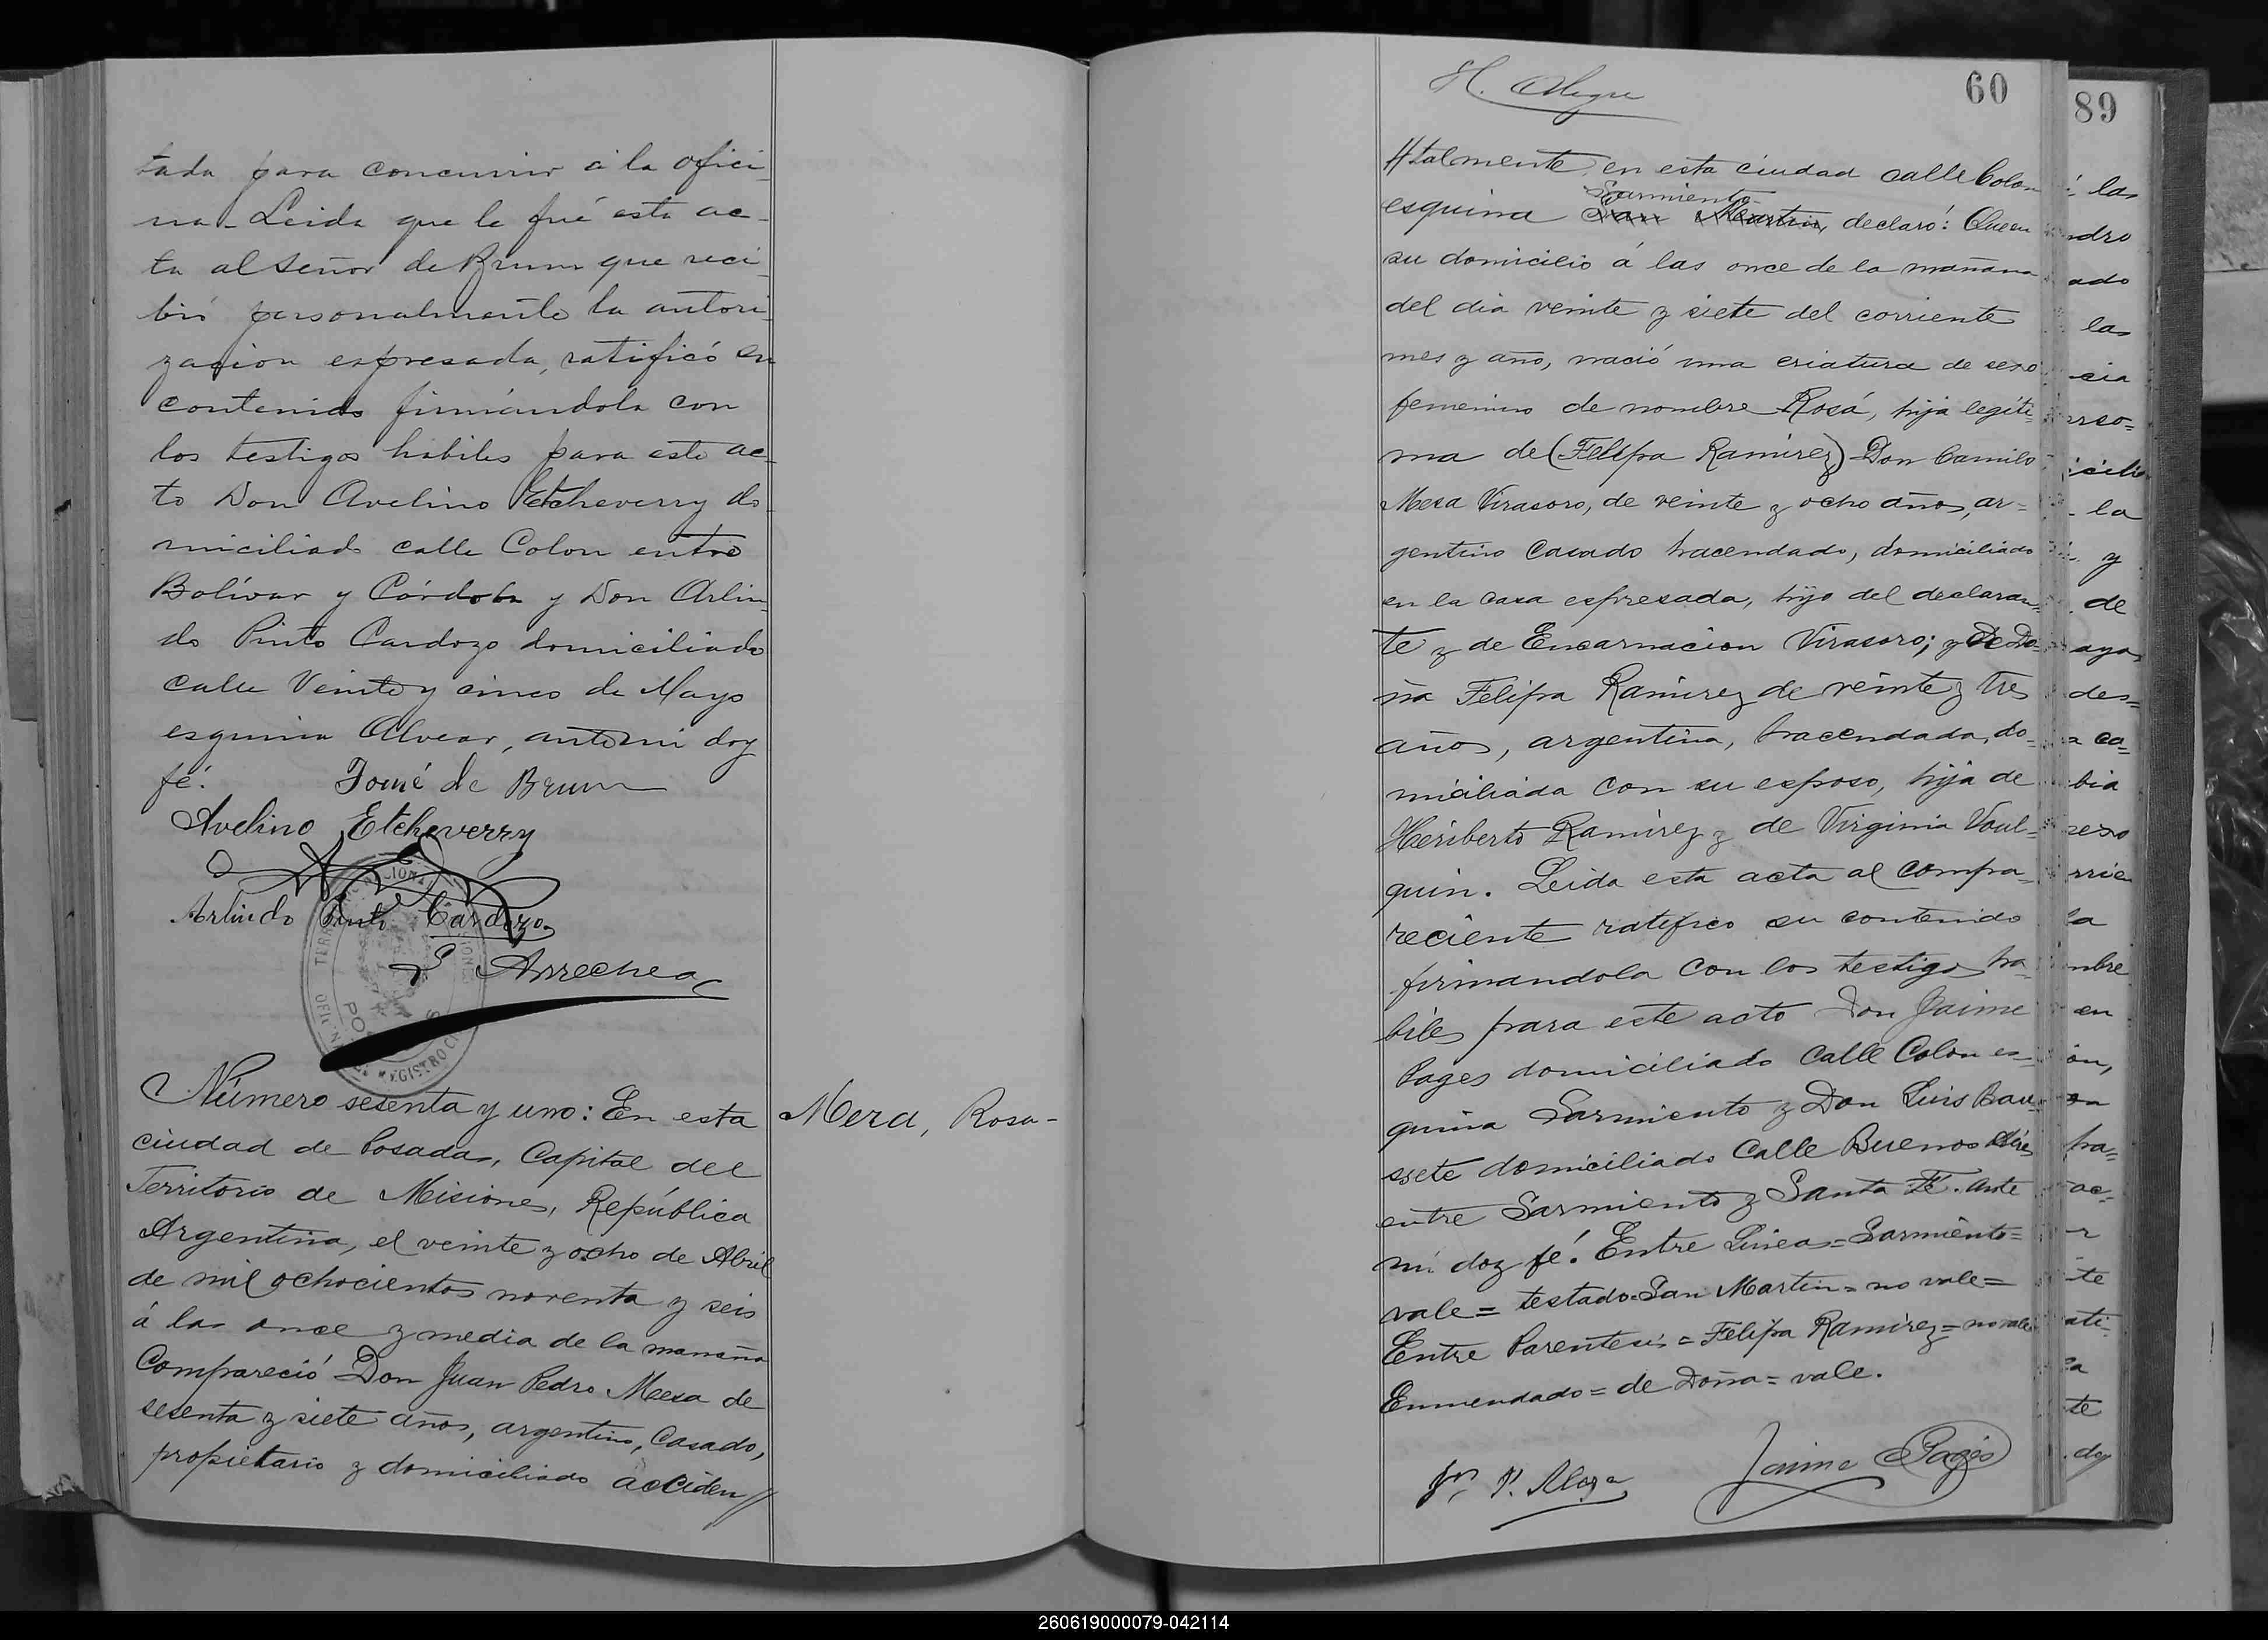 tada para concurrir á la ofici
na - Leida que le fué esta ac-
ta al Señor de Brum que reci
bió personalmente la autori
zacion espresada, ratificó su
contenido firmándola con
los testigos hábiles para este ac-
to Don Avelino Etcheverry do
miciliado calle Colon entre
Bolívar y Córdoba y Don Arlin
do Pinto Cardozo domiciliado
calle Veinte y cinco de Mayo
esquina Alvear, ante mi doy
fé.
Tomé de Brum
Avelino Etcheverry
Arlindo Pinto Cardozo
Arrechea
Número sesenta y uno: En esta
ciudad de Posadas, Capital del
Territorio de Misiones, República
Argentina, el veinte y ocho de Abril
de mil ochocientos noventa y seis
á las once y media de la mañana
Compareció Don Juan Pedro Meza de
sesenta y siete años, argentino, Casado,
propietario y domiciliado acciden//
Meza, Rosa-
60
//talmente en esta ciudad calle Colon
Sarmiento
esquina San Martin, declaró: Que en
su domicilio á las once de la mañana
del dia veinte y siete del corriente
mes y año, nació una criatura de sexo
femenino de nombre Rosá, hija legíti=
ma de (Felipa Ramirez) Don Camilo
Meza Virasoro, de veinte y ocho años, ar=
gentino Casado hacendado, domiciliado
en la casa espresada, hijo del declaran
te y de Encarnacion Virasoro; y de Do=
ña Felipa Ramirez de veinte y tres
años, argentina, hacendada, do=
miciliada con su esposo, hija de
Heriberto Ramirez y de Virginia Voul=
quin. Leida esta acta al compa=
reciente ratifico su contenido
firmandola con los testigos ha=
biles para este acto Don Jaime
Pages domiciliado Calle Colon es=
quina Sarmiento y Don Luis Bau
ssete domiciliado Calle Buenos Aires
entre Sarmiento y Santa Fé. ante
mi doy fé. Entre Lineas=Sarmiento=
vale= testado=San Martin=no vale=
Entre Parentesis=Felipa Ramirez=no vale
Enmendado=de Doña=vale.
Jn. P. Meza
Jaime Pagés
89
260619000079-042114